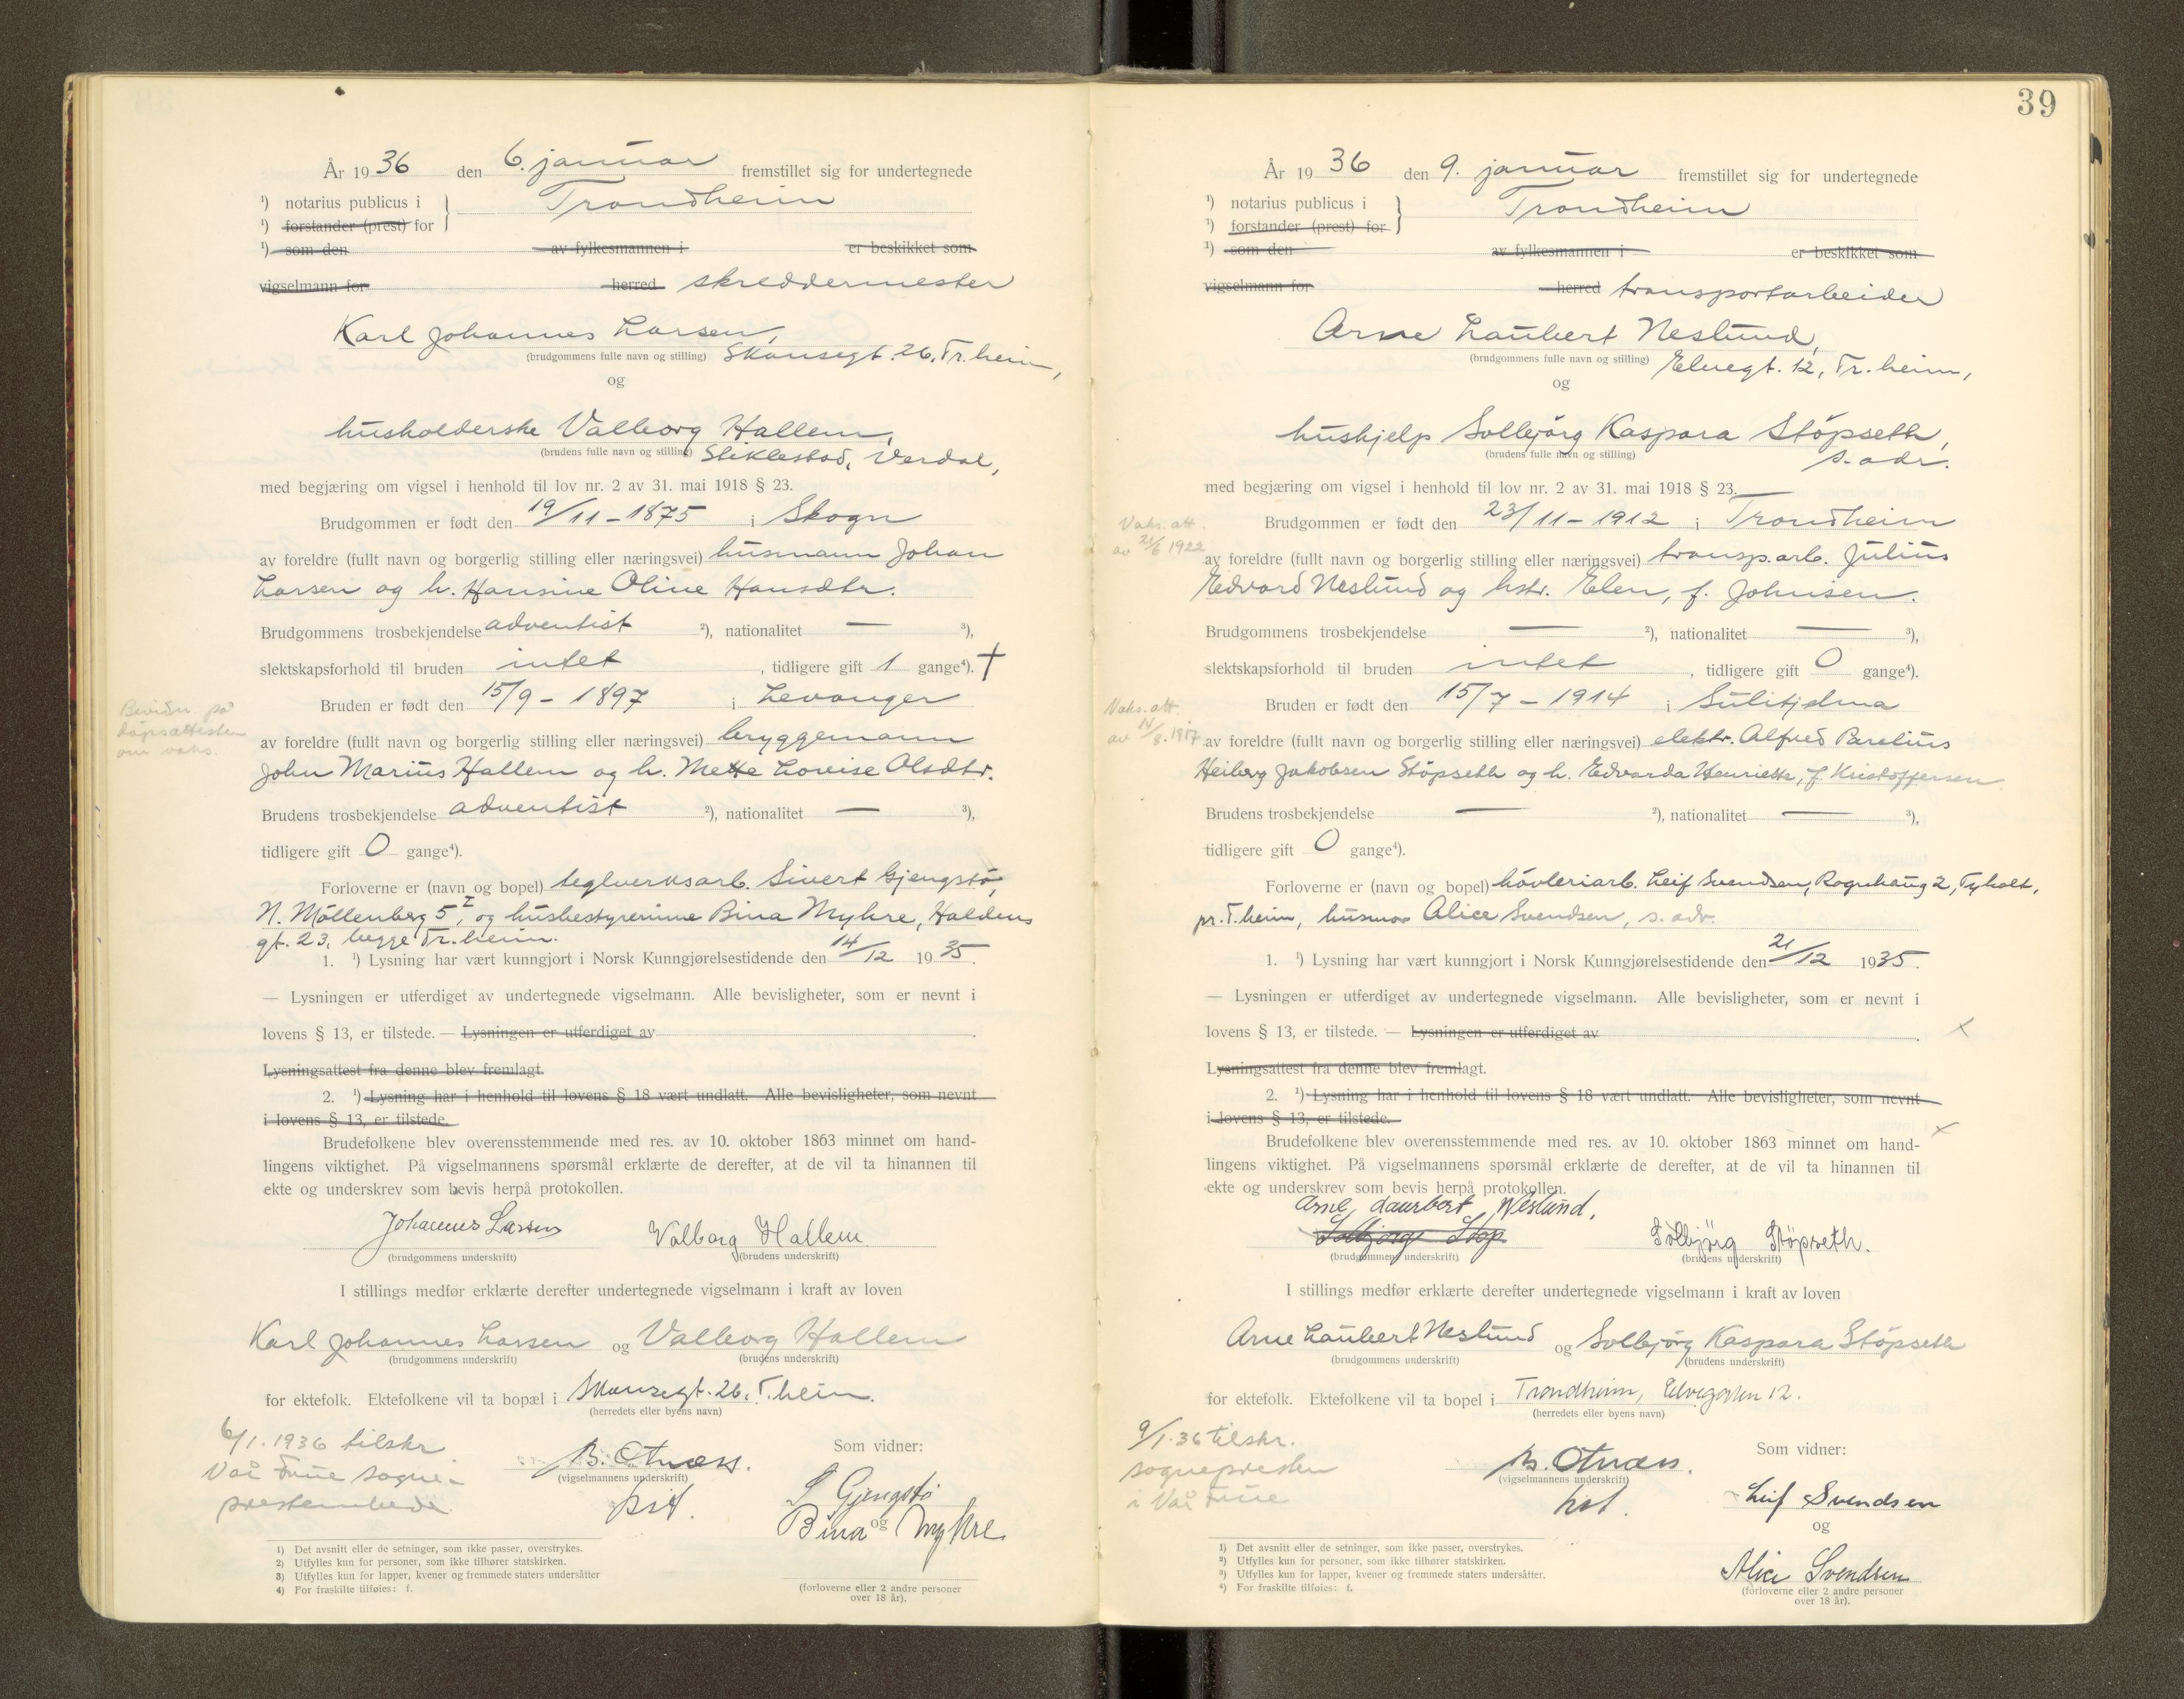 År 1936 den 6. januar fremstillet sig for undertegnede
¹) notarius publicus i
¹) forstander (prest) for } Trondheim
¹) som den av fylkesmannen i er beskikket som
vigselmann for herred skreddermester
Karl Johannes Larsen,
(brudgommens fulle navn og stilling) Skansegt. 26, Tr.heim,
og
husholderske Valborg Hallem,
(brudens fulle navn og stilling) Stiklestad, Verdal,
med begjæring om vigsel i henhold til lov nr. 2 av 31. mai 1918 § 23.
Brudgommen er født den 19/11-1875 i Skogn
av foreldre (fullt navn og borgerlig stilling eller næringsvei) husmann Johan
Larsen og h. Hansine Oline Hansdtr.
Brudgommens trosbekjendelse adventist ²), nationalitet — ³),
slektskapsforhold til bruden intet, tidligere gift 1 gange⁴). †
Bruden er født den 15/9-1897 i Levanger
Bevidn. på
dåpsattesten
om vaks.
av foreldre (fullt navn og borgerlig stilling eller næringsvei) bryggemann
John Marius Hallem og h. Mette Lovise Olsdtr.
Brudens trosbekjendelse adventist ²), nationalitet — ³),
tidligere gift 0 gange⁴).
Forloverne er (navn og bopel) teglverksarb. Sivert Gjengstø,
N. Möllenberg 5 I, og husbestyrerinne Bina Myhre, Haldens
gt. 23, begge Tr.heim.
1. ¹) Lysning har vært kunngjort i Norsk Kunngjørelsestidende den 14/12 1935.
— Lysningen er utferdiget av undertegnede vigselmann. Alle bevisligheter, som er nevnt i
lovens § 13, er tilstede. — Lysningen er utferdiget av
Lysningsattest fra denne blev fremlagt.
2. ¹) Lysning har i henhold til lovens § 18 vært undlatt. Alle bevisligheter, som nevnt
i lovens § 13, er tilstede.
Brudefolkene blev overensstemmende med res. av 10. oktober 1863 minnet om hand-
lingens viktighet. På vigselmannens spørsmål erklærte de derefter, at de vil ta hinannen til
ekte og underskrev som bevis herpå protokollen.
Johannes Larsen Valborg Hallem
(brudgommens underskrift) (brudens underskrift)
I stillings medfør erklærte derefter undertegnede vigselmann i kraft av loven
Karl Johannes Larsen og Valborg Hallem
(brudgommens underskrift) (brudens underskrift)
for ektefolk. Ektefolkene vil ta bopæl i Skansegt. 26, T.heim.
(herredets eller byens navn)
6/1. 1936 tilskr
Vår Frue sogne-
prestembede
B. Otnæss.
(vigselmannens underskrift)
Som vidner:
S Gjengstø
og
Bina Myhre
(forloverne eller 2 andre personer
over 18 år).
1) Det avsnitt eller de setninger, som ikke passer, overstrykes.
2) Utfylles kun for personer, som ikke tilhører statskirken.
3) Utfylles kun for lapper, kvener og fremmede staters undersåtter
4) For fraskilte tilføies: f.
39
År 1936 den 9. januar fremstillet sig for undertegnede
¹) notarius publicus i
¹) forstander (prest) for } Trondheim
¹) som den av fylkesmannen i er beskikket som
vigselmann for herred transportarbeider
Arne Laubert Neslund,
(brudgommens fulle navn og stilling) Elvegt. 12, Tr.heim,
og
hushjelp Solbjörg Kaspara Stöpseth,
(brudens fulle navn og stilling) s. adr.
med begjæring om vigsel i henhold til lov nr. 2 av 31. mai 1918 § 23.
Brudgommen er født den 23/11-1912 i Trondheim
Vaks. att.
av 21/6 1922
av foreldre (fullt navn og borgerlig stilling eller næringsvei) transp.arb. Julius
Edvard Neslund og hstr. Elen, f. Johnsen.
Brudgommens trosbekjendelse — ²), nationalitet — ³),
slektskapsforhold til bruden intet, tidligere gift 0 gange⁴).
Bruden er født den 15/7-1914 i Sulitjelma
Vaks. att.
av 14/8. 1917
av foreldre (fullt navn og borgerlig stilling eller næringsvei) elektr. Alfred Parelius
Heiberg Jakobsen Stöpseth og h. Edvarda Henriette, f. Kristoffersen
Brudens trosbekjendelse — ²), nationalitet — ³),
tidligere gift 0 gange⁴).
Forloverne er (navn og bopel) hövleriarb. Leif Svendsen, Rognhaug 2, Tyholt,
pr. T.heim, husmor Alice Svendsen, s. adr.
1. ¹) Lysning har vært kunngjort i Norsk Kunngjørelsestidende den 21/12 1935.
— Lysningen er utferdiget av undertegnede vigselmann. Alle bevisligheter, som er nevnt i
lovens § 13, er tilstede. — Lysningen er utferdiget av
Lysningsattest fra denne blev fremlagt.
2. ¹) Lysning har i henhold til lovens § 18 vært undlatt. Alle bevisligheter, som nevnt
i lovens § 13, er tilstede.
Brudefolkene blev overensstemmende med res. av 10. oktober 1863 minnet om hand-
lingens viktighet. På vigselmannens spørsmål erklærte de derefter, at de vil ta hinannen til
ekte og underskrev som bevis herpå protokollen.
Arne Laurbert Neslund.
Solbjørg Støp Solbjörg Stöpseth.
(brudgommens underskrift) (brudens underskrift)
I stillings medfør erklærte derefter undertegnede vigselmann i kraft av loven
Arne Laubert Neslund og Solbjörg Kaspara Stöpseth
(brudgommens underskrift) (brudens underskrift)
for ektefolk. Ektefolkene vil ta bopel i Trondheim, Elvegaten 12.
(herredets eller byens navn)
9/1.36 tilskr.
sognepresten
i Vår Frue
B. Otnæss.
(vigselmannens underskrift)
Som vidner:
Leif Svendsen
og
Alice Svendsen
(forloverne eller 2 andre personer
over 18 år).
¹) Det avsnitt eller de setninger, som ikke passer, overstrykes.
²) Utfylles kun for personer, som ikke tilhører statskirken.
³) Utfylles kun for lapper, kvener og fremmede staters undersåtter.
⁴) For fraskilte tilføies: f.